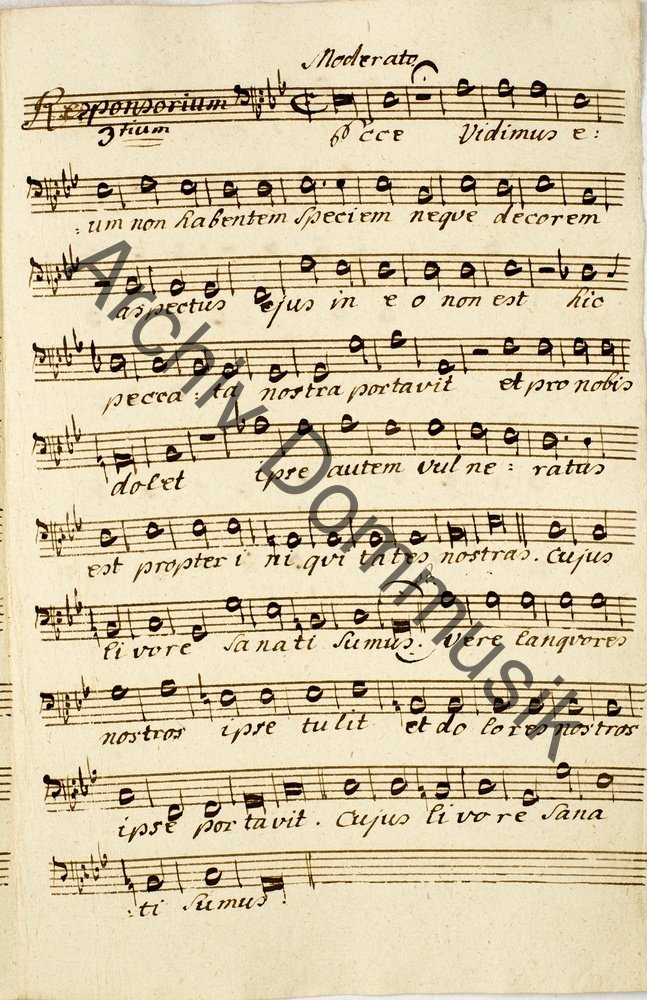 Moderato
Responsorium
3tium
Ecce Vidimus e:
:um non habentem Speciem neque decorem
aspectus ejus in e o non est hic
pecca: ta nostra portavit et pro nobis
dolet ipse autem vul ne: ratus
est propter i ni qui tates nostras. Cujus
li vore Sanati Sumus. Vere langvores
nostros ipse tulit et do lores nostros
ipse portavit. Cujus livore Sana
:ti Sumus.
Archiv Dommusik